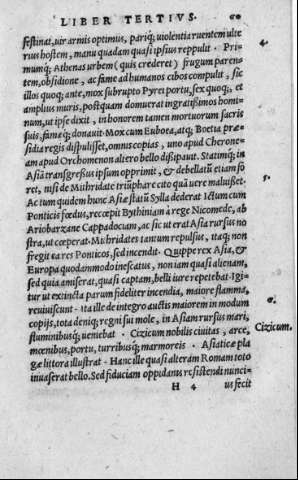 LIBER TERTIVS. 60
festinat, uir armis optimus, pariq; uiolentia ruentem ulte
rius hostem, manu quadam quasi ipsius reppulit. Pri- 4.
mumq; Athenas urbem (quis crederet) frugum paren-
tem, obsidione, ac fame ad humanos cibos compulit, sic
illos quoq; ante, mox subrupto Pyrei portu, sex quoq;, et
amplius muris, postquam domuerat ingratissimos homi-
num, ut ipse dixit, in honorem tamen mortuorum sacris
suis, famæq; donauit. Mox cum Eubœa, atq; Bœtia præ-
sidia regis dispulisset, omnis copias, uno apud Cherone-
am apud Orchomenon altero bello dissipauit. Statimq; in
Asiã transgressus ipsum opprimit, & debellatũ etiam fo
ret, nisi de Mithridate triũphare cito quã uere maluisset. 5.
Ac tum quidem hunc Asiæ statũ Sylla dederat Ictum cum
Ponticis fœdus, recœpit Bythiniam à rege Nicomede, ab
Ariobarzane Cappadociam, ac sic ut erat Asia rursus no
stra, ut cœperat. Mithridates tantum repulsus, itaq; non
fregit ea res Ponticos, sed incendit. Quipperex Asia, &
Europa quodammodo inescatus, non iam quasi alienam,
sed quia amiserat, quasi captam, belli iure repetebat. Igi-
tur ut extincta parum fideliter incendia, maiore flamma,
reuiuiscunt. Ita ille de integro auctis maiorem in modum
copijs, tota deniq; regni sui mole, in Asiam rursus mari,
fluminibusq; ueniebat. Cizicum nobilis ciuitas, arce, Cizicum.
mœenibus, portu, turribusq; marmoreis. Asiaticæ pla
gæ littora illustrat. Hanc ille quasi alteram Romam toto
inuaserat bello. Sed fiduciam oppidanis resistendi nunci-
H 4 us fecit